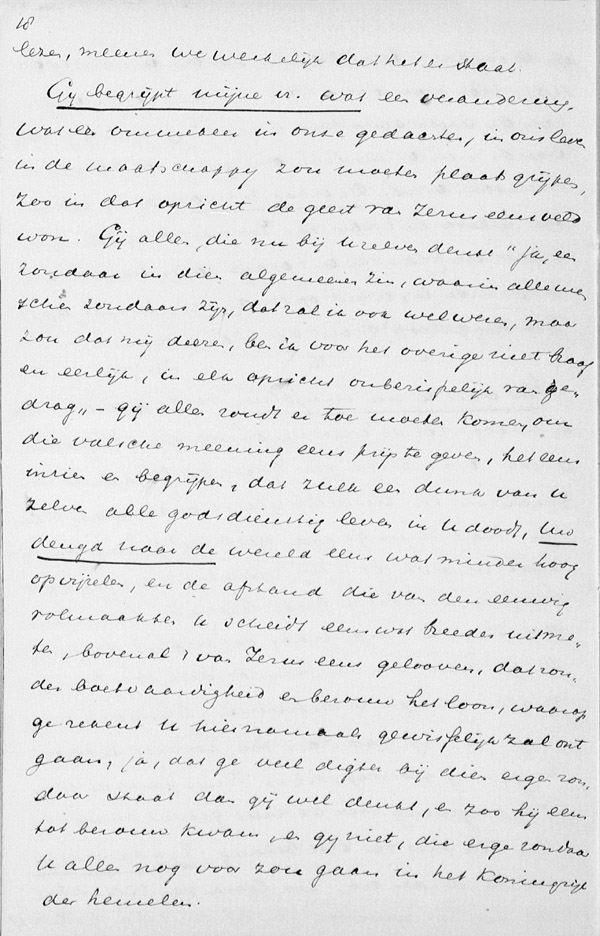 18
lezen, meenen we werkelijk dat het er staat.
Gij begrijpt mijne vr. wat een verandering,
wat een ommekeer in onze gedachten, in ons leven
in de maatschappy zou moeten plaats grijpen,
zoo in dat opzicht de geest van Jezus eens veld
won. Gij allen, die nu bij Uzelven denkt "ja, een
zondaar in dien algemeenen zin, waarin alle men
schen zondaars zijn, dat zal ik ook wel wezen, maar
zou dat mij deeren, ben ik voor het overige niet braaf
en eerlijk, in elk opzicht onberispelijk van ge
drag„ – gij allen zoudt er toe moeten komen, om
die valsche meening eens prijs te geven, het eens
inzien en begrijpen, dat zulk een dunk van U
zelven alle godsdienstig leven in U doodt, Uw
deugd naar de wereld eens wat minder hoog
opvijzelen, en de afstand die van den eeuwig
volmaakten U scheidt eens wat breeder uitme-
ten, bovenal van Jezus eens gelooven, dat zon-
der boetvaardigheid en berouw het loon, waarop
ge rekent U hiernamaals gewisselijk zal ont
gaan, ja, dat ge veel digter bij dien erge zon-
daar staat dan gij wel denkt, en zoo hij eens
tot berouw kwam, en gij niet, die erge zondaar
U allen nog voor zou gaan in het Koningrijk
der hemelen.